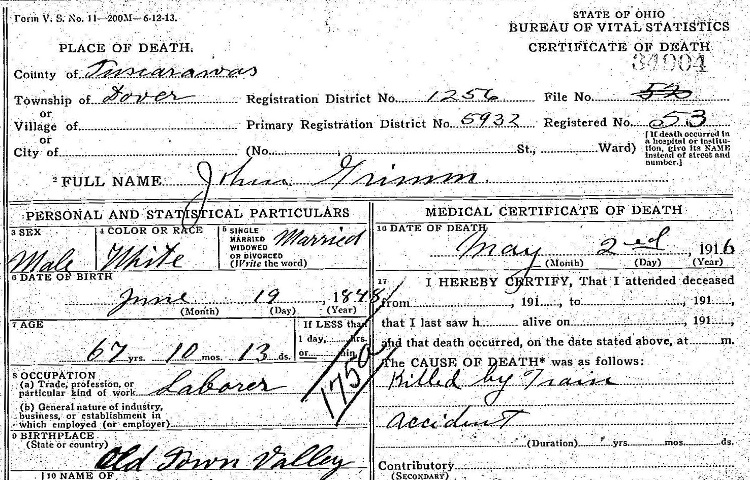 Form V. S. No. 11—200M—6-12-13.
STATE OF OHIO
BUREAU OF VITAL STATISTICS
PLACE OF DEATH.
CERTIFICATE OF DEATH
34904
County of Tuscarawas
Township of Dover Registration District No. 1256 File No. 52
or
Village of Primary Registration District No. 5932 Registered No. 53
or
City of (No. , St., Ward)
[If death occurred in a hospital or institution, give its NAME instead of street and number.]
2 FULL NAME John Grimm
PERSONAL AND STATISTICAL PARTICULARS
3 SEX Male
4 COLOR OR RACE White
5 SINGLE MARRIED WIDOWED OR DIVORCED (Write the word) Married
6 DATE OF BIRTH
June 19, 1848
(Month) (Day) (Year)
7 AGE
67 yrs. 10 mos. 13 ds.
If LESS than 1 day, hrs. or min.
1750
8 OCCUPATION
(a) Trade, profession, or particular kind of work Laborer
(b) General nature of industry, business, or establishment in which employed (or employer)
9 BIRTHPLACE
(State or country)
Old Town Valley
10 NAME OF
MEDICAL CERTIFICATE OF DEATH
16 DATE OF DEATH
May 2nd 1916
(Month) (Day) (Year)
17 I HEREBY CERTIFY, That I attended deceased
from , 191 , to , 191 ,
that I last saw h alive on , 191 ,
and that death occurred, on the date stated above, at m.
The CAUSE OF DEATH* was as follows:
Killed by Train
Accident
(Duration) yrs. mos. ds.
Contributory
(SECONDARY)